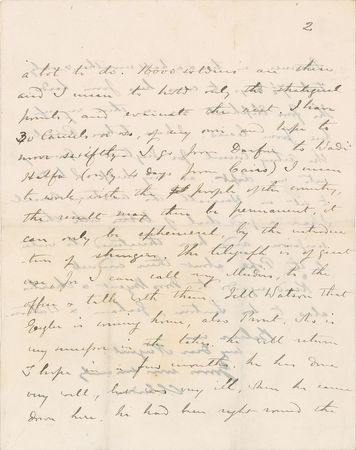 2
a lot to do. 16000 soldiers are there
and I mean to hold only the strategical
points, and evacuate the rest. I have
30 over and hope to
move swiftly. I go from Darfur to Wadi
Halfa (only 4 days from Cairo) I mean
to work with the people of the country,
the result may then be permanent, it
can only be ephemeral, by the introduc
tion of strangers. The telegraph is of great
use for I can call my to the
office & talk with them. Tell Watson that
is coming home, also Prout. This is
my in the he will return
I hope in a few months, he has done
very well, but was very ill, when he came
down here. he had been right round the